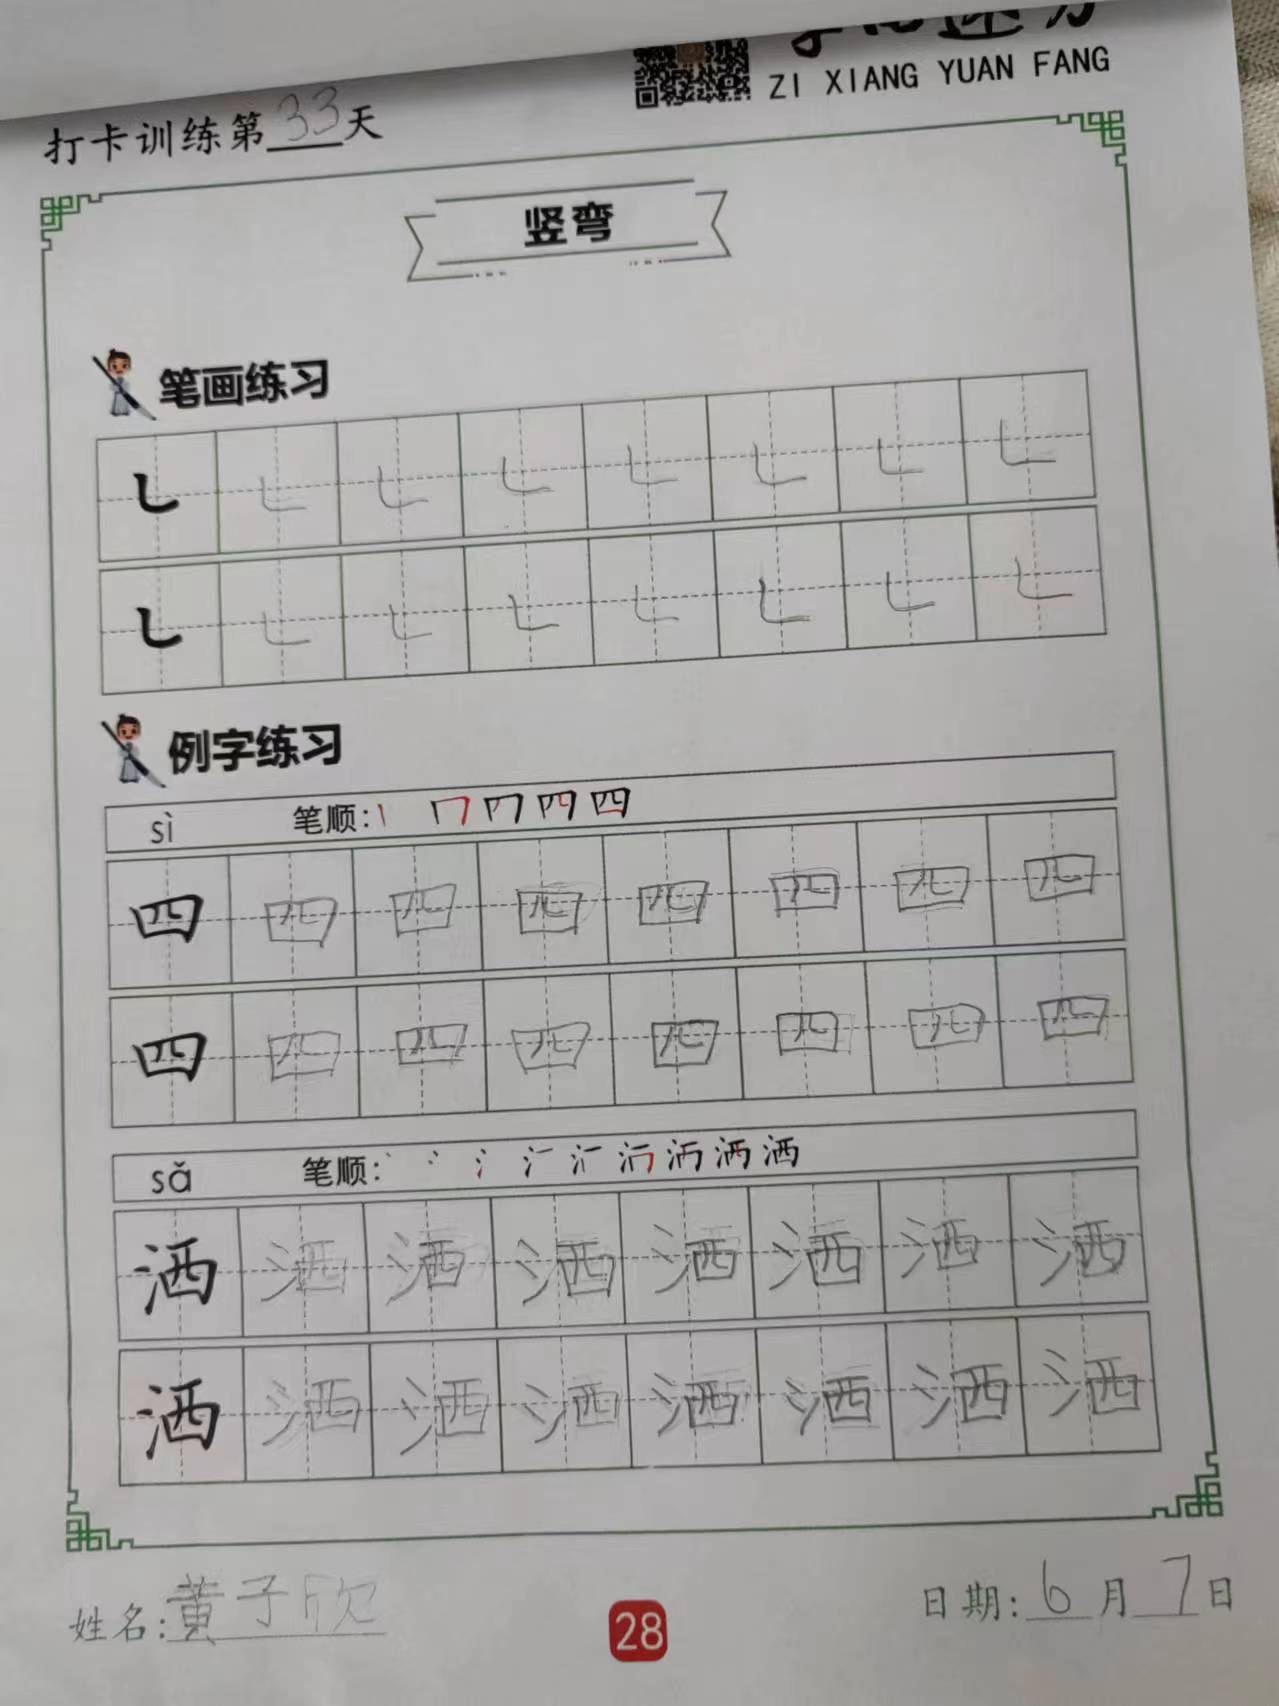 ZI XIANG YUAN FANG
打卡训练第33天
竖弯
笔画练习
㇄ ㇄ ㇄ ㇄ ㇄ ㇄ ㇄ ㇄
㇄ ㇄ ㇄ ㇄ ㇄ ㇄ ㇄ ㇄
例字练习
sì 笔顺: 四
四 四 四 四 四 四 四 四
四 四 四 四 四 四 四 四
sǎ 笔顺: 洒
洒 洒 洒 洒 洒 洒 洒 洒
洒 洒 洒 洒 洒 洒 洒 洒
姓名:黄子欣
28
日期:6月7日